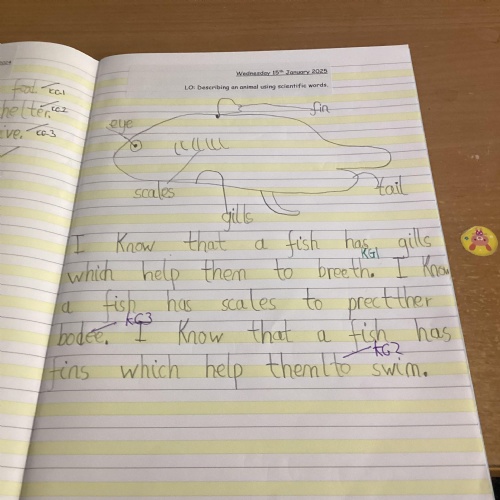 Wednesday 15th January 2025
LO: Describing an animal using scientific words.
fin
eye
scales
tail
gills
I Know that a fish has gills
KG1
which help them to breeth. I Know
a fish has scales to prectther
KG3
bodee. I Know that a fish has
KG2
fins which help them to swim.
KG1
helter. KG2
ive. KG3